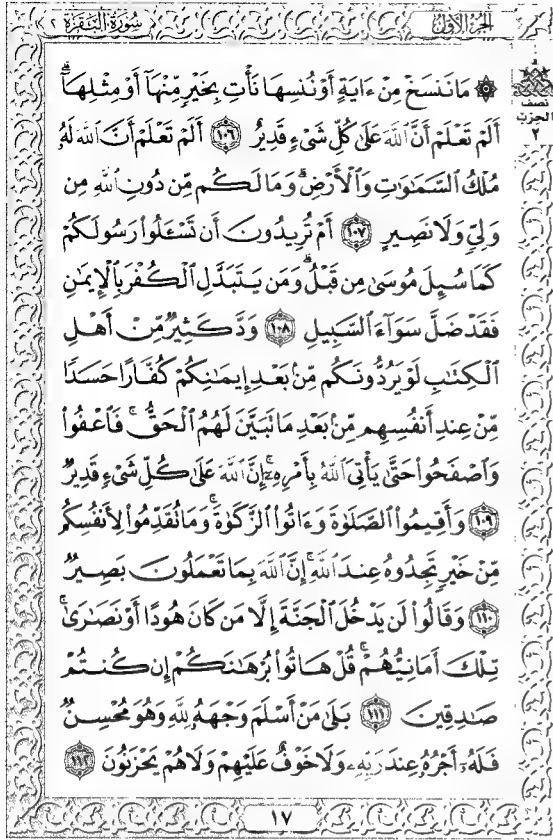 الجزء الأول
سورة البقرة ٢
نصف
الحزب
٢
۞ مَا نَنسَخْ مِنْ ءَايَةٍ أَوْ نُنسِهَا نَأْتِ بِخَيْرٍ مِّنْهَآ أَوْ مِثْلِهَآ ۗ
أَلَمْ تَعْلَمْ أَنَّ ٱللَّهَ عَلَىٰ كُلِّ شَىْءٍ قَدِيرٌ ١٠٦ أَلَمْ تَعْلَمْ أَنَّ ٱللَّهَ لَهُۥ
مُلْكُ ٱلسَّمَٰوَٰتِ وَٱلْأَرْضِ ۗ وَمَا لَكُم مِّن دُونِ ٱللَّهِ مِن
وَلِىٍّ وَلَا نَصِيرٍ ١٠٧ أَمْ تُرِيدُونَ أَن تَسْـَٔلُوا۟ رَسُولَكُمْ
كَمَا سُئِلَ مُوسَىٰ مِن قَبْلُ ۗ وَمَن يَتَبَدَّلِ ٱلْكُفْرَ بِٱلْإِيمَٰنِ
فَقَدْ ضَلَّ سَوَآءَ ٱلسَّبِيلِ ١٠٨ وَدَّ كَثِيرٌ مِّنْ أَهْلِ
ٱلْكِتَٰبِ لَوْ يَرُدُّونَكُم مِّنۢ بَعْدِ إِيمَٰنِكُمْ كُفَّارًا حَسَدًا
مِّنْ عِندِ أَنفُسِهِم مِّنۢ بَعْدِ مَا تَبَيَّنَ لَهُمُ ٱلْحَقُّ ۖ فَٱعْفُوا۟
وَٱصْفَحُوا۟ حَتَّىٰ يَأْتِىَ ٱللَّهُ بِأَمْرِهِۦٓ ۗ إِنَّ ٱللَّهَ عَلَىٰ كُلِّ شَىْءٍ قَدِيرٌ
١٠٩ وَأَقِيمُوا۟ ٱلصَّلَوٰةَ وَءَاتُوا۟ ٱلزَّكَوٰةَ ۚ وَمَا تُقَدِّمُوا۟ لِأَنفُسِكُم
مِّنْ خَيْرٍ تَجِدُوهُ عِندَ ٱللَّهِ ۗ إِنَّ ٱللَّهَ بِمَا تَعْمَلُونَ بَصِيرٌ
١١٠ وَقَالُوا۟ لَن يَدْخُلَ ٱلْجَنَّةَ إِلَّا مَن كَانَ هُودًا أَوْ نَصَٰرَىٰ ۗ
تِلْكَ أَمَانِيُّهُمْ ۗ قُلْ هَاتُوا۟ بُرْهَٰنَكُمْ إِن كُنتُمْ
صَٰدِقِينَ ١١١ بَلَىٰ مَنْ أَسْلَمَ وَجْهَهُۥ لِلَّهِ وَهُوَ مُحْسِنٌ
فَلَهُۥٓ أَجْرُهُۥ عِندَ رَبِّهِۦ وَلَا خَوْفٌ عَلَيْهِمْ وَلَا هُمْ يَحْزَنُونَ ١١٢
١٧